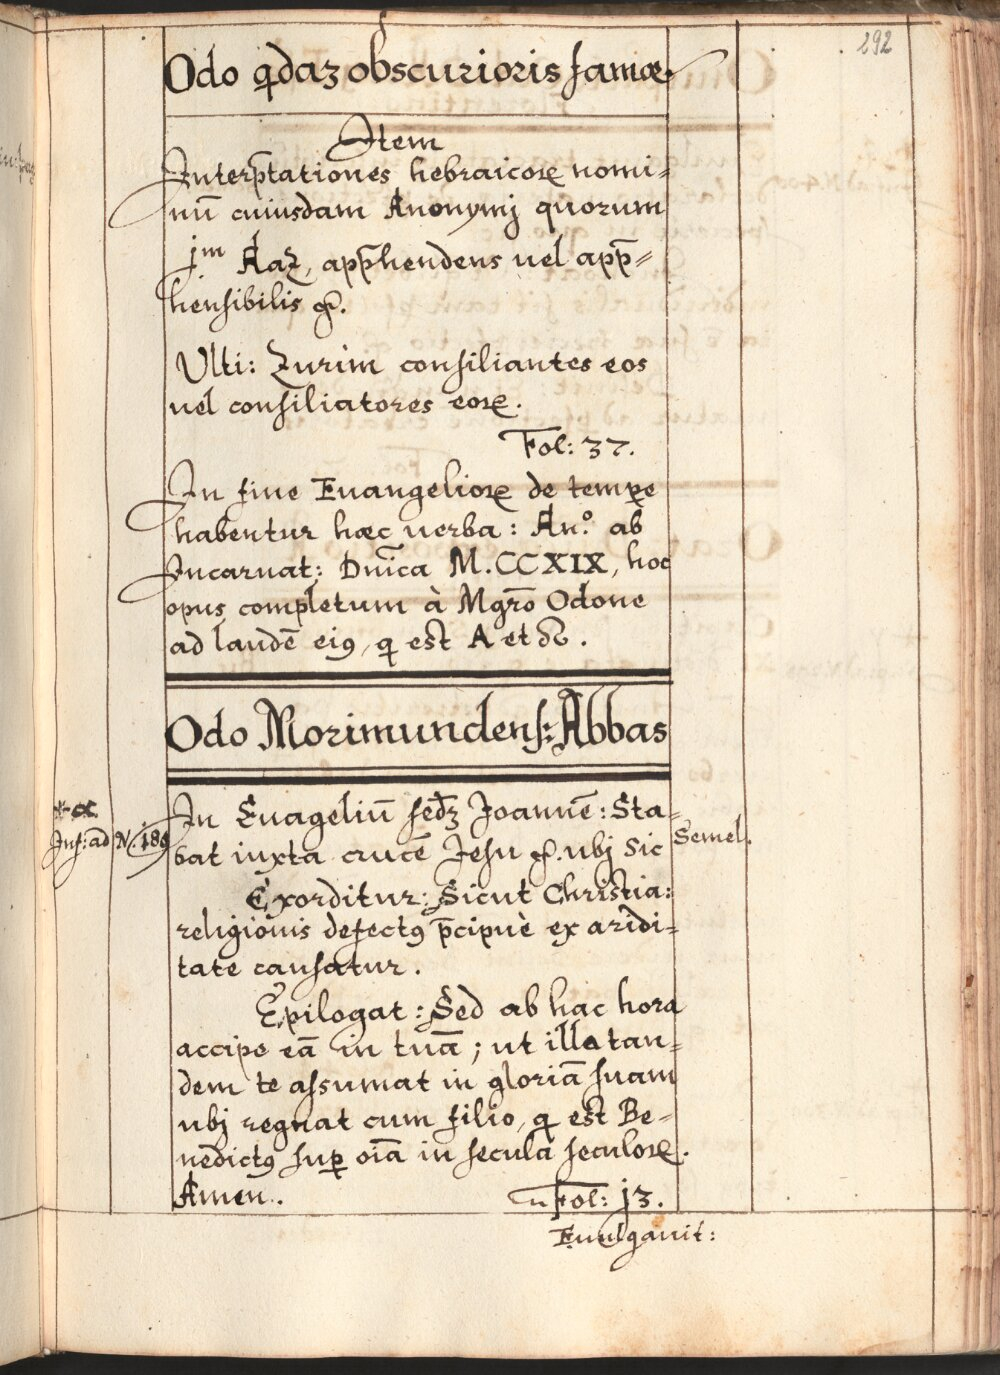 292
Odo q̃daz obscurioris famæ.
Item
Interp̃tationes hebraicoꝝ nomi-
nũ cuiusdam Anonymj quorum
jm Aaz, app̃hendens uel app̃-
hensibilis &.
Ulti: Zurim consiliantes eos
uel consiliatores eoꝝ.
Fol: 37.
In fine Euangelioꝝ de tempe
habentur hæc uerba: An.º ab
Incarnat: Dnĩca M.CCXIX, hoc
opus completum à Mgrõ Odone
ad laudẽ eiꝰ, q̃ est A et Ω.
Odo Morimundens: Abbas
*α
In Euãgeliũ secdz Joannẽ: Sta-
Inf: ad N. 189
bat iuxta crucẽ Jesu &. ubj sic
Semel.
Exorditur: Sicut Christia:
religionis defectꝰ p̃cipuè ex aridi-
tate causatur.
Epilogat: Sed ab hac hora
accipe eã in tuã; ut illa tan-
dem te assumat in gloriã suam
ubj regnat cum filio, q̃ est Be-
nedictꝰ suꝑ oĩa in secula seculoꝝ.
Amen.
Fol: 13.
Euulgauit: